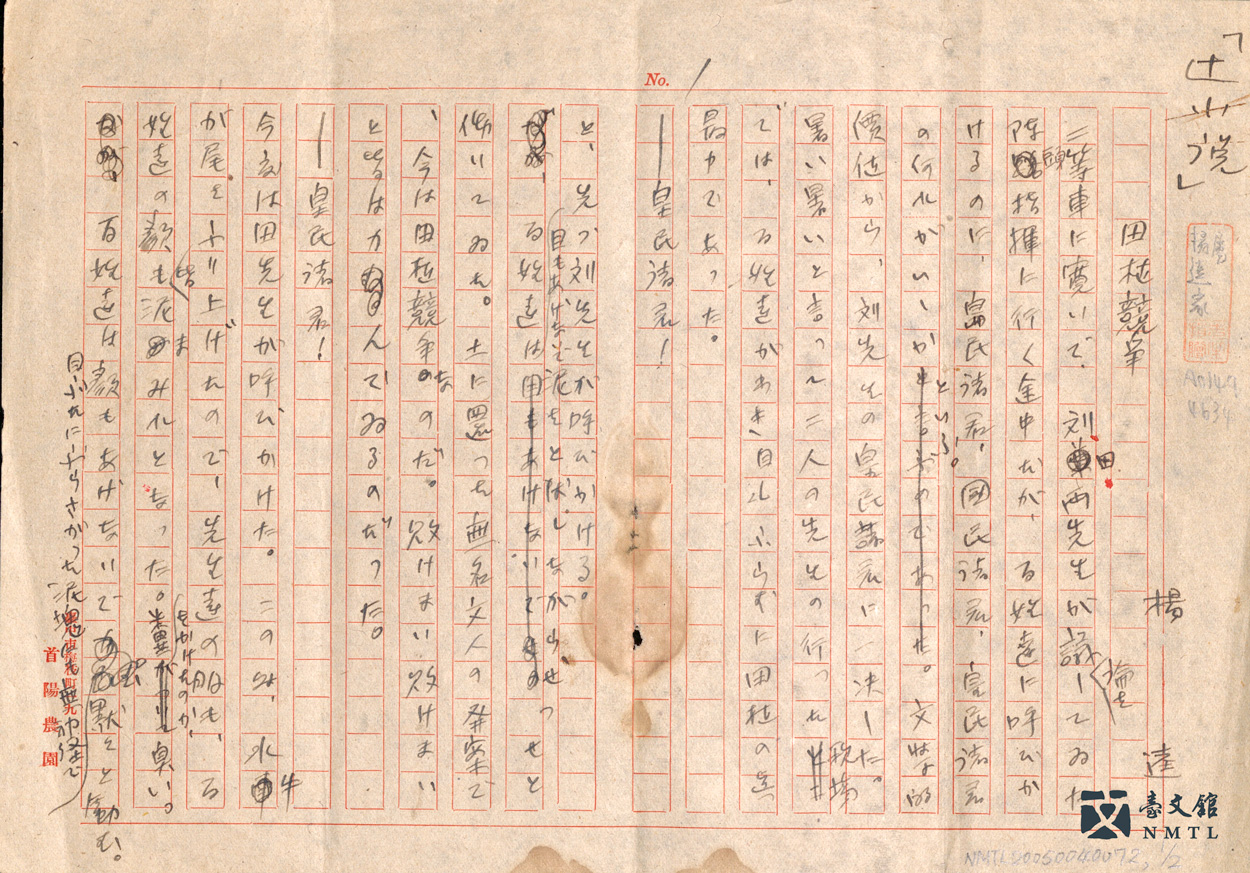 「辻小説」
田植競争
楊 逵
三等車に寛いで、刘田両先生が議論をしてゐた
陣頭指揮に行く途中だが、百姓達に呼びか
けるのに、島民諸君、国民諸君、皇民諸君
の何れがいゝかといふ。文学的
價値から、刘先生の皇民諸君に一決した。
暑い暑いと言って二人の先生の行った牧場
では、百姓達がわき目もふらずに田植の真
最中であった。
―皇民諸君！
No. 1
と、先づ刘先生が呼びかける。
目もあげないで泥をとばしながら、せっ
百姓達は せと
働いてゐた。土に還った無名文人の発案で
、今は田植競争なのだ。敗けまい敗けまい
と皆は力んでゐるのだった。
―皇民諸君！
今度は田先生が呼びかけた。この时、水牛
が尾をふり上げたので、先生達の服も、百
姓達の顔も皆泥まみれとなった。糞をかけたのか臭い。
百姓達は顔もあげないで黙々と働む。
目ぶたにぶらさがった泥塊も無神経で
首陽農園
臺文館
NMTL
NMTL20050040072, 1/2